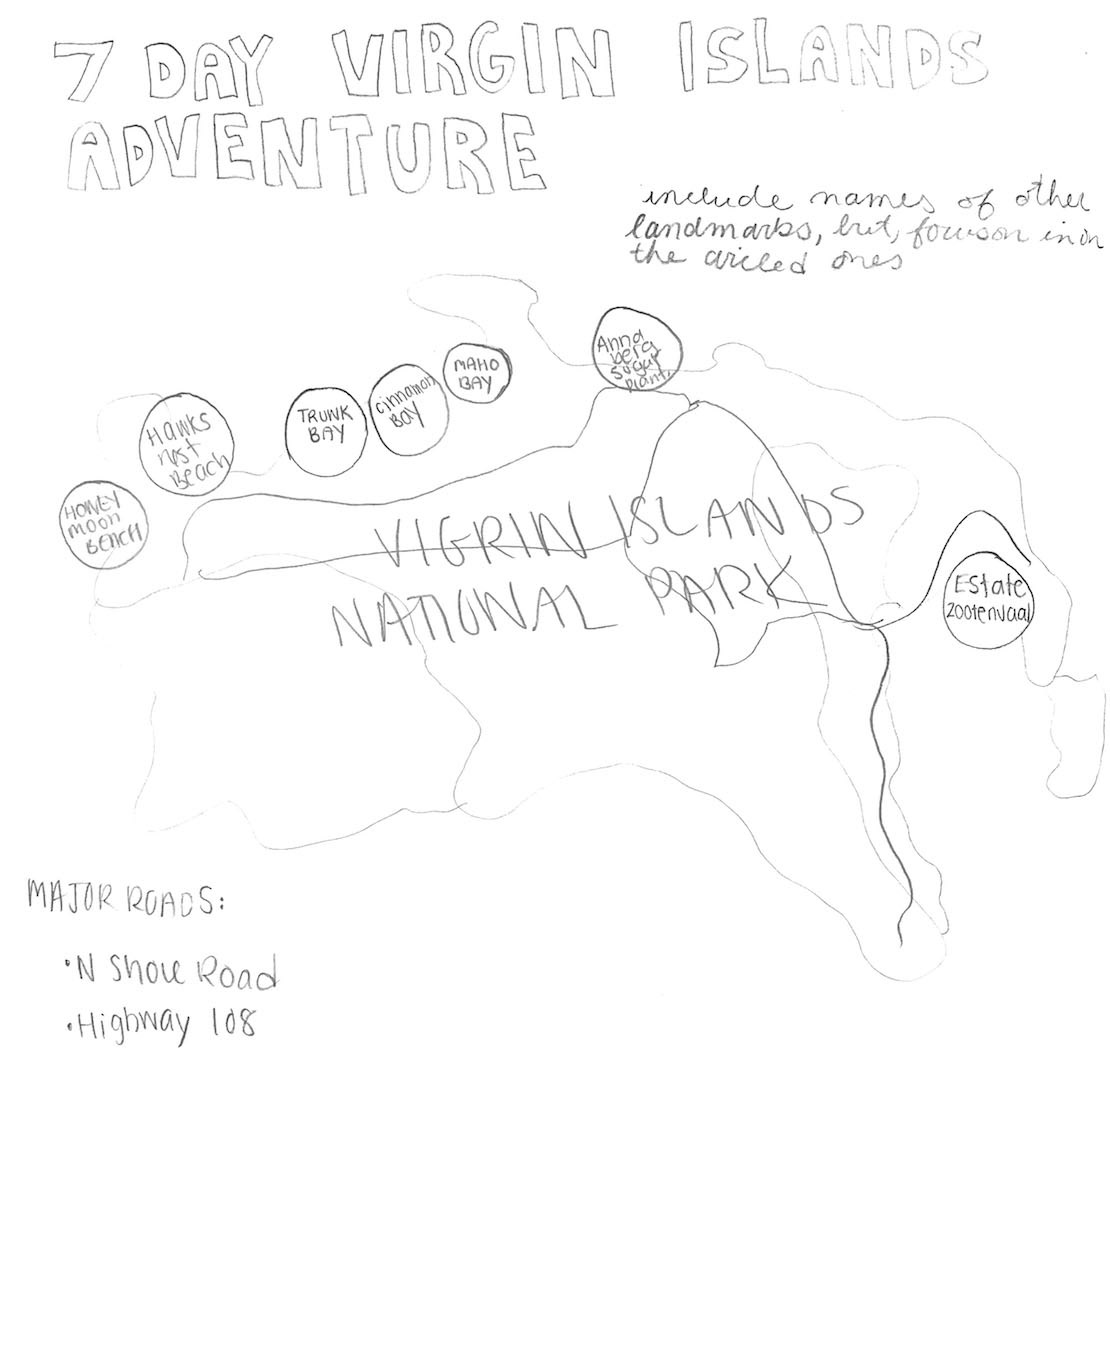 7 DAY VIRGIN ISLANDS
ADVENTURE
include names of other
landmarks, but, focus on in on
the circled ones
Anna
berg
sugar
plant.
MAHO
BAY
cinnamon
BAY
TRUNK
BAY
Hawks
nest
Beach
HONEY
moon
BEACH
VIGRIN ISLANDS
NATIONAL PARK
Estate
zootenvaal
MAJOR ROADS:
• N Shore Road
• Highway 108